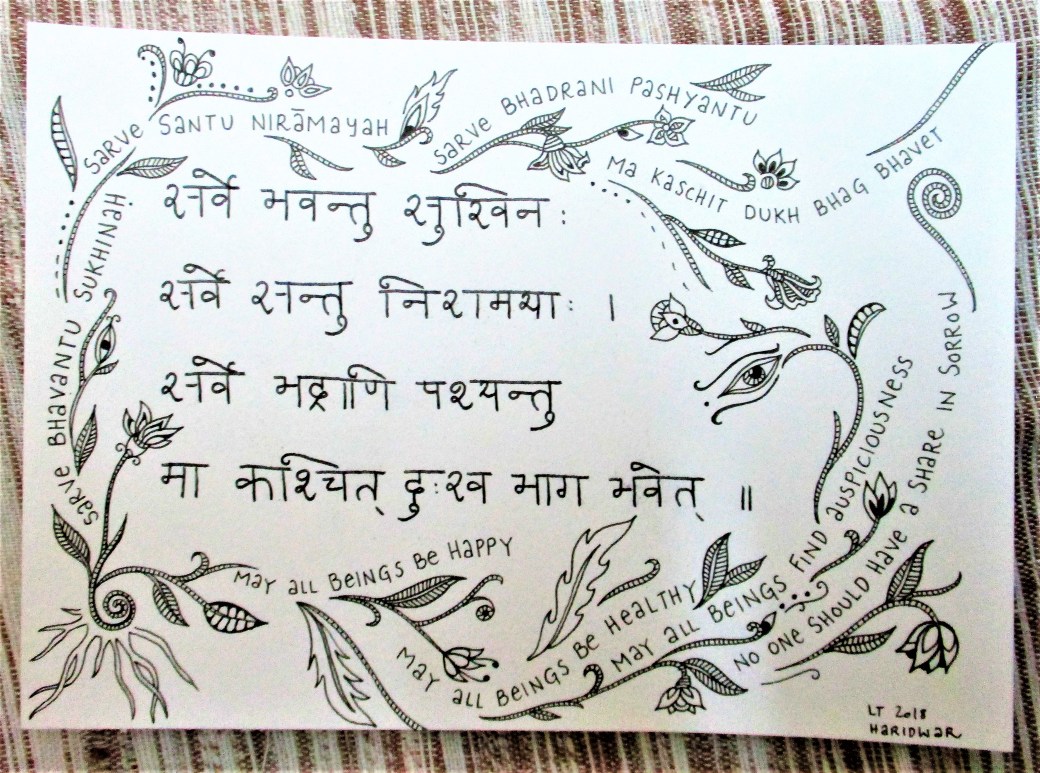 सर्वे भवन्तु सुखिन:
सर्वे सन्तु निरामया: ।
सर्वे भद्राणि पश्यन्तु
मा कश्चित् दुःख भाग भवेत् ॥
SARVE BHAVANTU SUKHINAH
SARVE SANTU NIRĀMAYAH
SARVE BHADRANI PASHYANTU
MA KASCHIT DUKH BHAG BHAVET
MAY ALL BEINGS BE HAPPY
MAY ALL BEINGS BE HEALTHY
MAY ALL BEINGS FIND AUSPICIOUSNESS
NO ONE SHOULD HAVE A SHARE IN SORROW
LT 2018
HARIDWAR